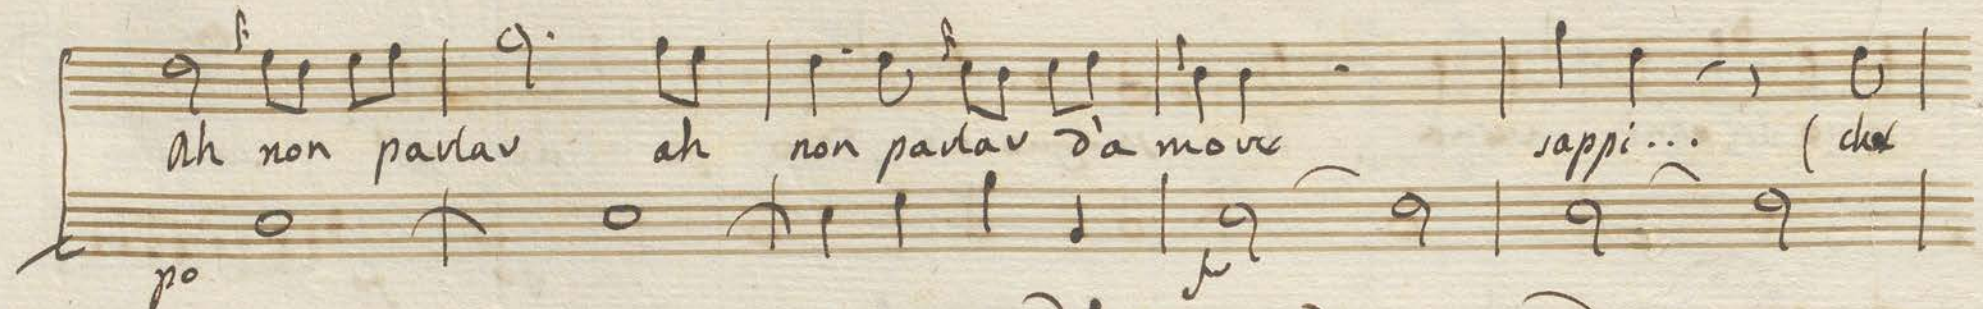 Ah non parlar ah non parlar d'a more sappi... (che
po
f